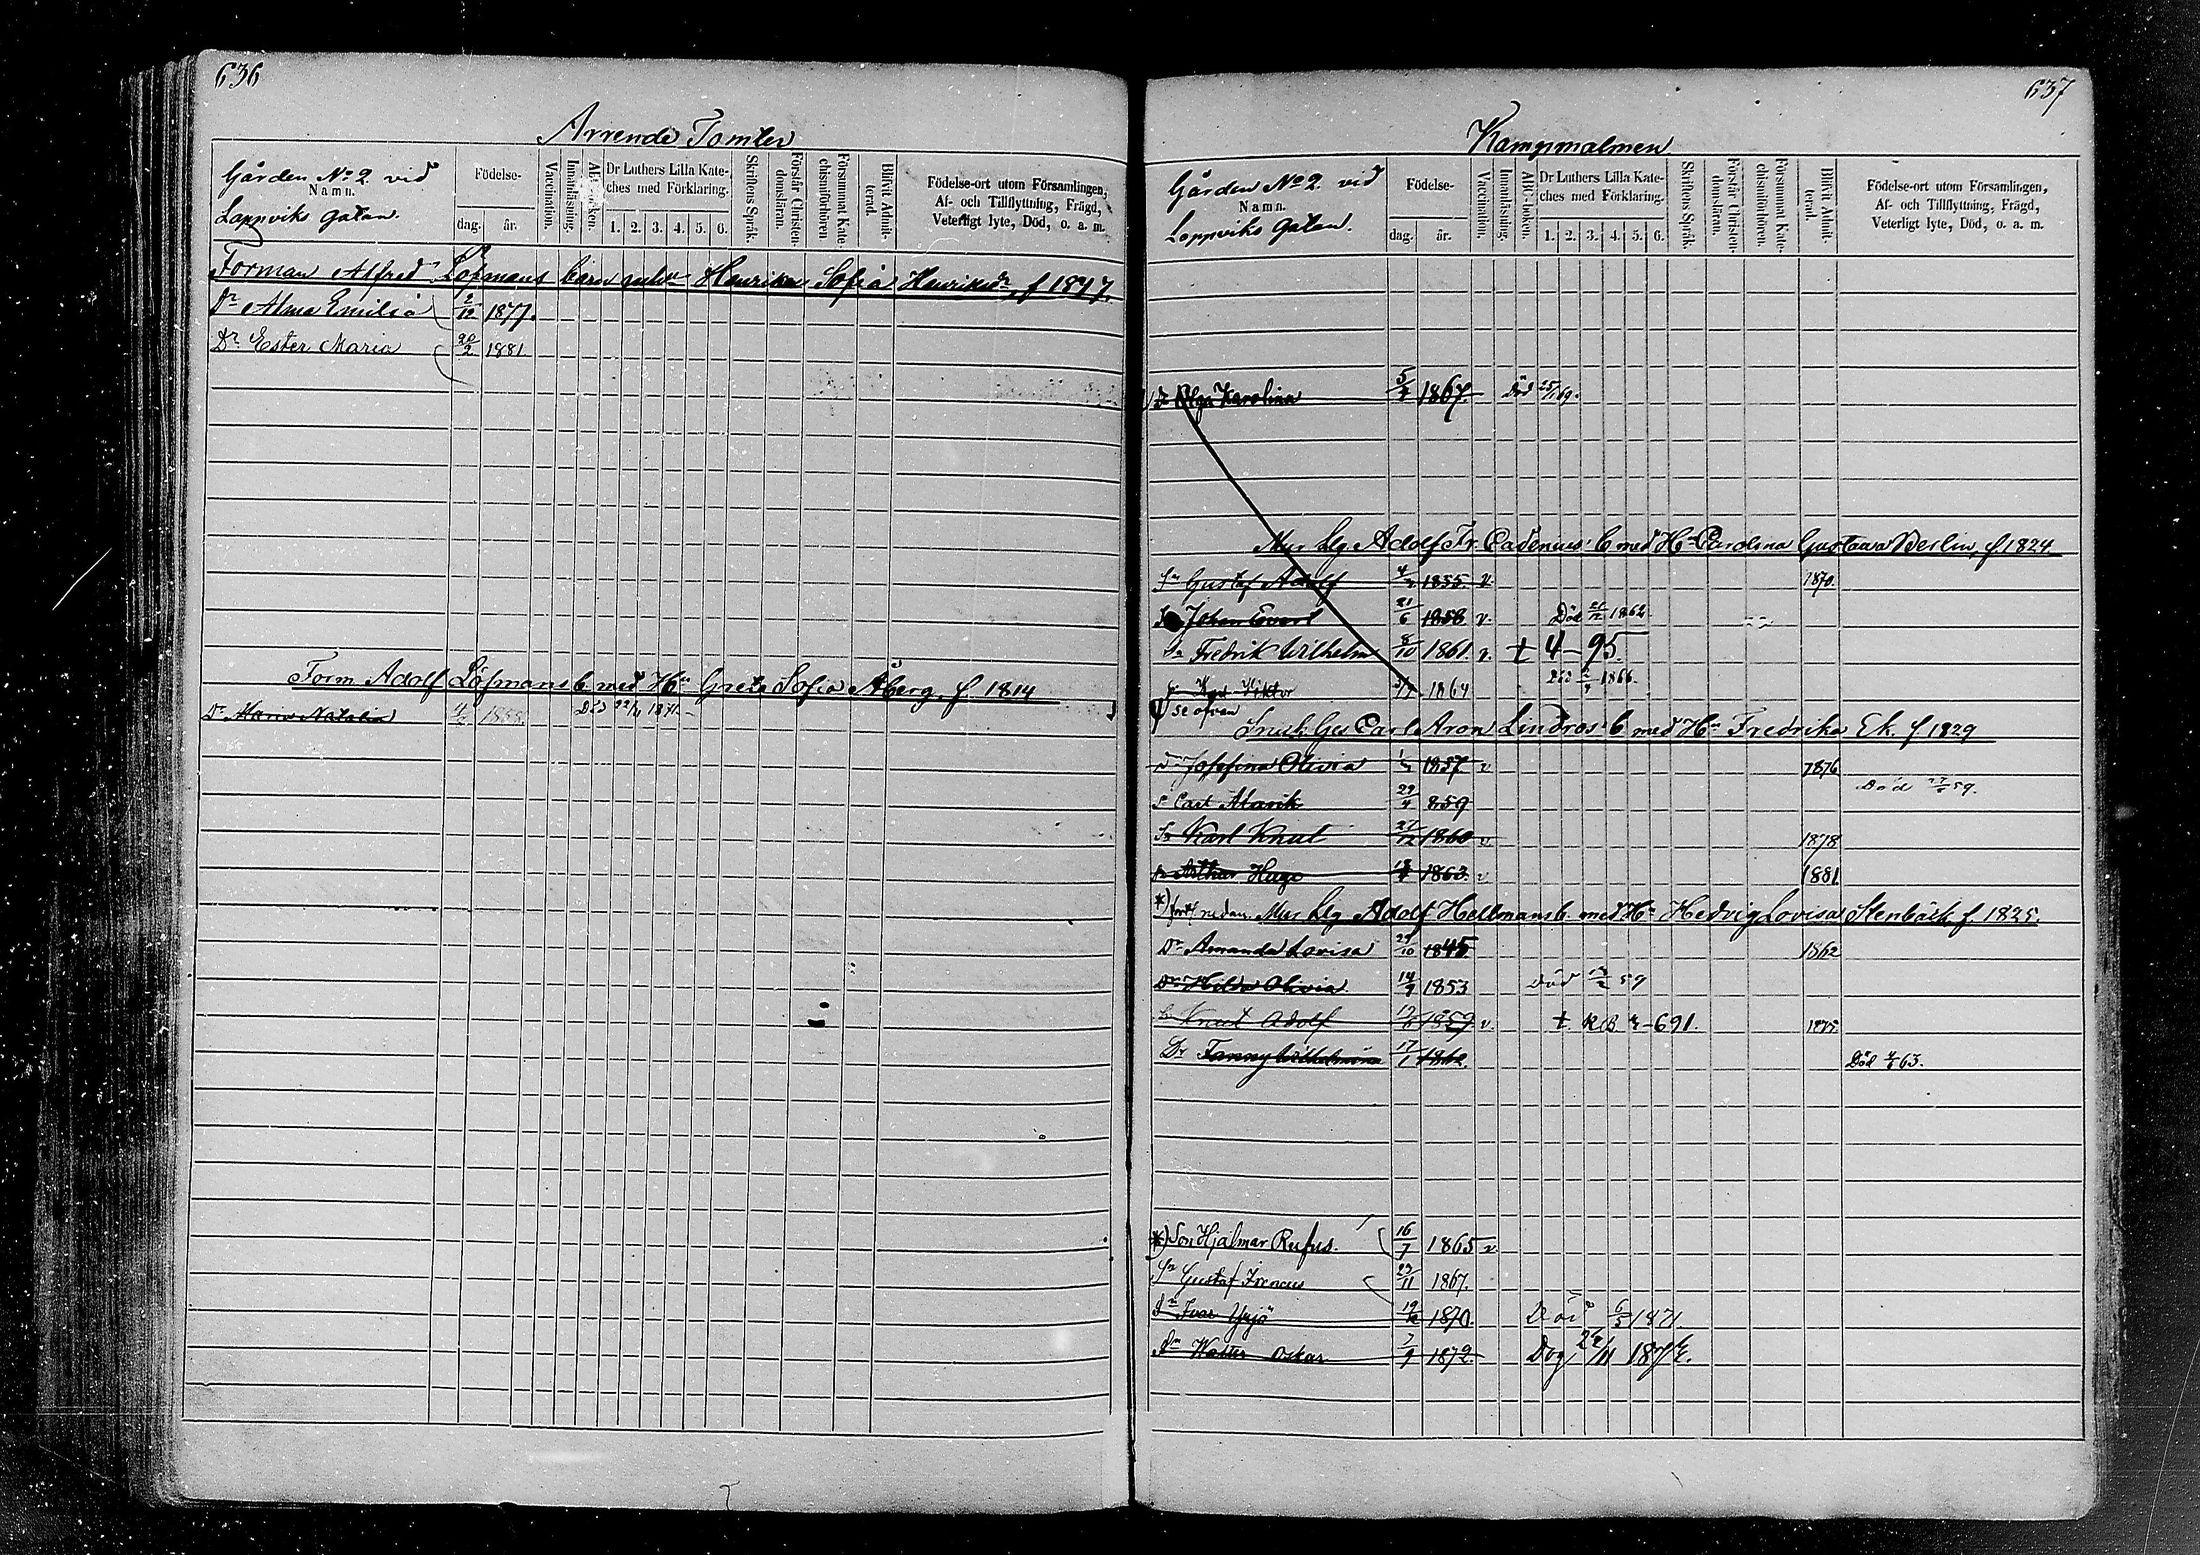 636
Arrende Tomter
Gården No 2. vid
Namn.
Lappviks gatan.
Födelse-
dag. år.
Vaccination.
Innanläsning.
Dr Luthers Lilla Kate-
ches med Förklaring.
1. 2. 3. 4. 5. 6.
Skriftens Språk.
Förstår Christen-
domsläran.
Försummat Kate-
chismiförhören.
Blifvit Admit-
terad.
Födelse-ort utom Församlingen,
Af- och Tillflyttning, Frägd,
Veterligt lyte, Död, o. a. m.
Forman Alfred Löfmans barn Henrika Sofia Henriksdr, f 1847.
Dr Alma Emilia 2/12 1877.
Dr Ester Maria 20/2 1881
Form Adolf Löfmans b med Hu Greta Sofia Åberg, f. 1814
Dr Maria Natalia 4/2 1855. Död 1871.
637
Kampmalmen
Gården No 2. vid
Namn.
Lappviks Gatan.
Födelse-
dag. år.
Vaccination.
Innanläsning.
ABC-boken.
Dr Luthers Lilla Kate-
ches med Förklaring.
1. 2. 3. 4. 5. 6.
Skriftens Språk.
Förstår Christen-
domsläran.
Försummat Kate-
chismiförhören.
Blifvit Admit-
terad.
Födelse-ort utom Församlingen,
Af- och Tillflyttning, Frägd,
Veterligt lyte, Död, o. a. m.
Olga Karolina 1867. Död
Mur Lg Adolf Fr. Cadenius' b med Hu Carolina Gustava Berlin, f 1824
Sn Gustaf Adolf 1855. v. 1870.
Johan Evert 21/6 1858 v. Död 1862.
Sn Fredrik Wilhelm 8/10 1861. v. † 4-95.
Viktor 1864 1866.
se ofvan
Snick. Ges Carl Aron Lindros' b med Hu Fredrika Ek. f 1829
Josefina Olivia 1857 v 1876
S Carl Alarik 29/4 859 Död 59.
Sn Karl Knut 27/12 1860 v 1878
Arthur Hugo 1863. v 1881
*) forts. nedan. Mur Lg Adolf Hellmans b. med Hu Hedvig Lovisa Stenbäck f. 1825.
Dr Amanda Lovisa 1845 1862
Dr Hilda Olivia. 1853 Död 59
Knut Adolf 1859. v. † R.B. -691. 1875.
Dr Fanny Wilhelmina 17/1 1862. Död 63.
*) Son Hjalmar Rufus. 16/7 1865 v.
Sn Gustaf Ireneus 23/11 1867.
Sn Ivar Yrjö 1870. Död 6/5 1871.
Sn Walter Oskar 1872. Dog